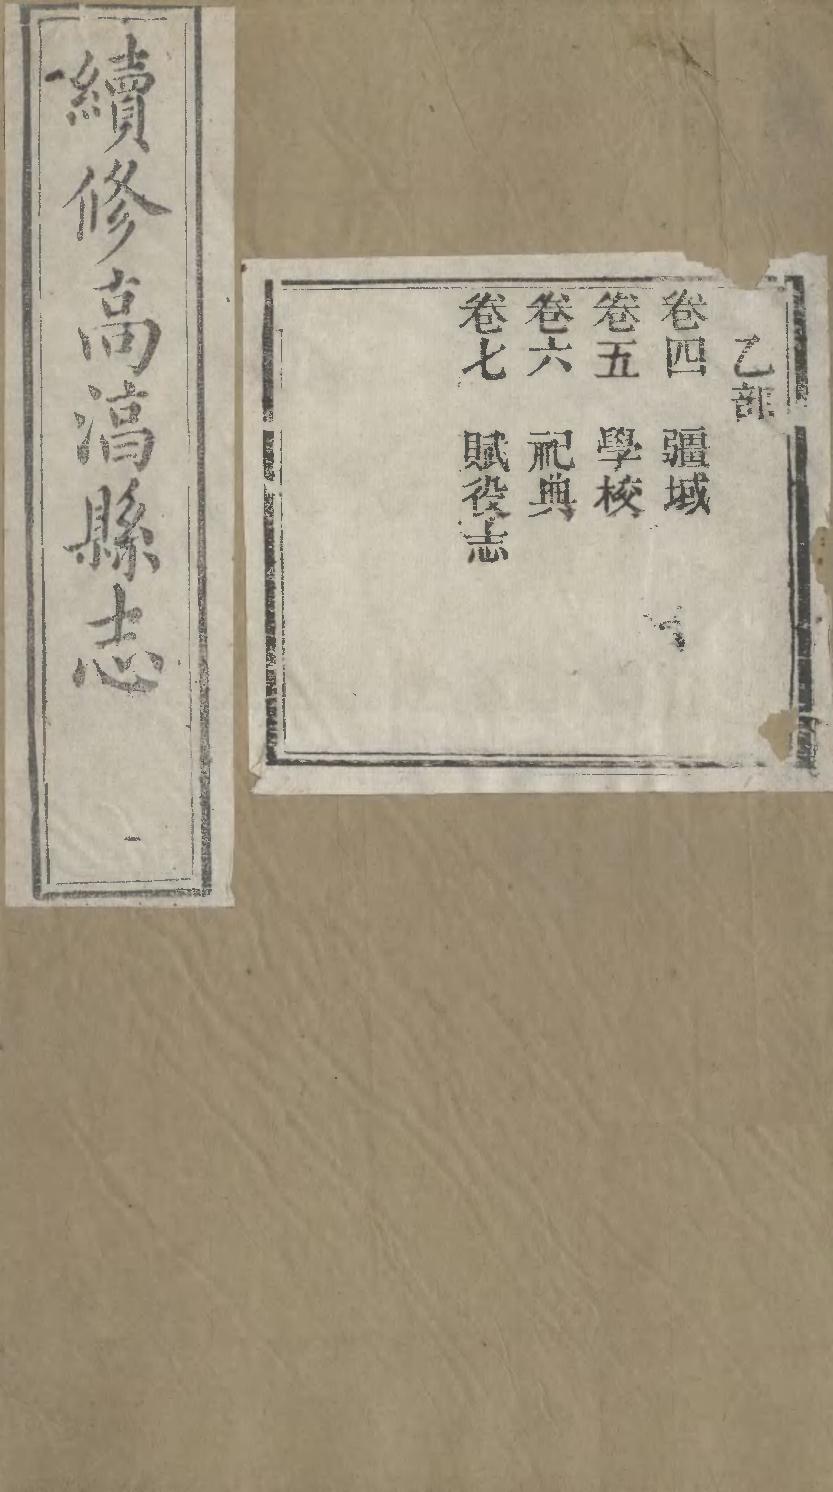 乙部
卷四 疆域
卷五 學校
卷六 祀典
卷七 賦役志
續修高湻縣志